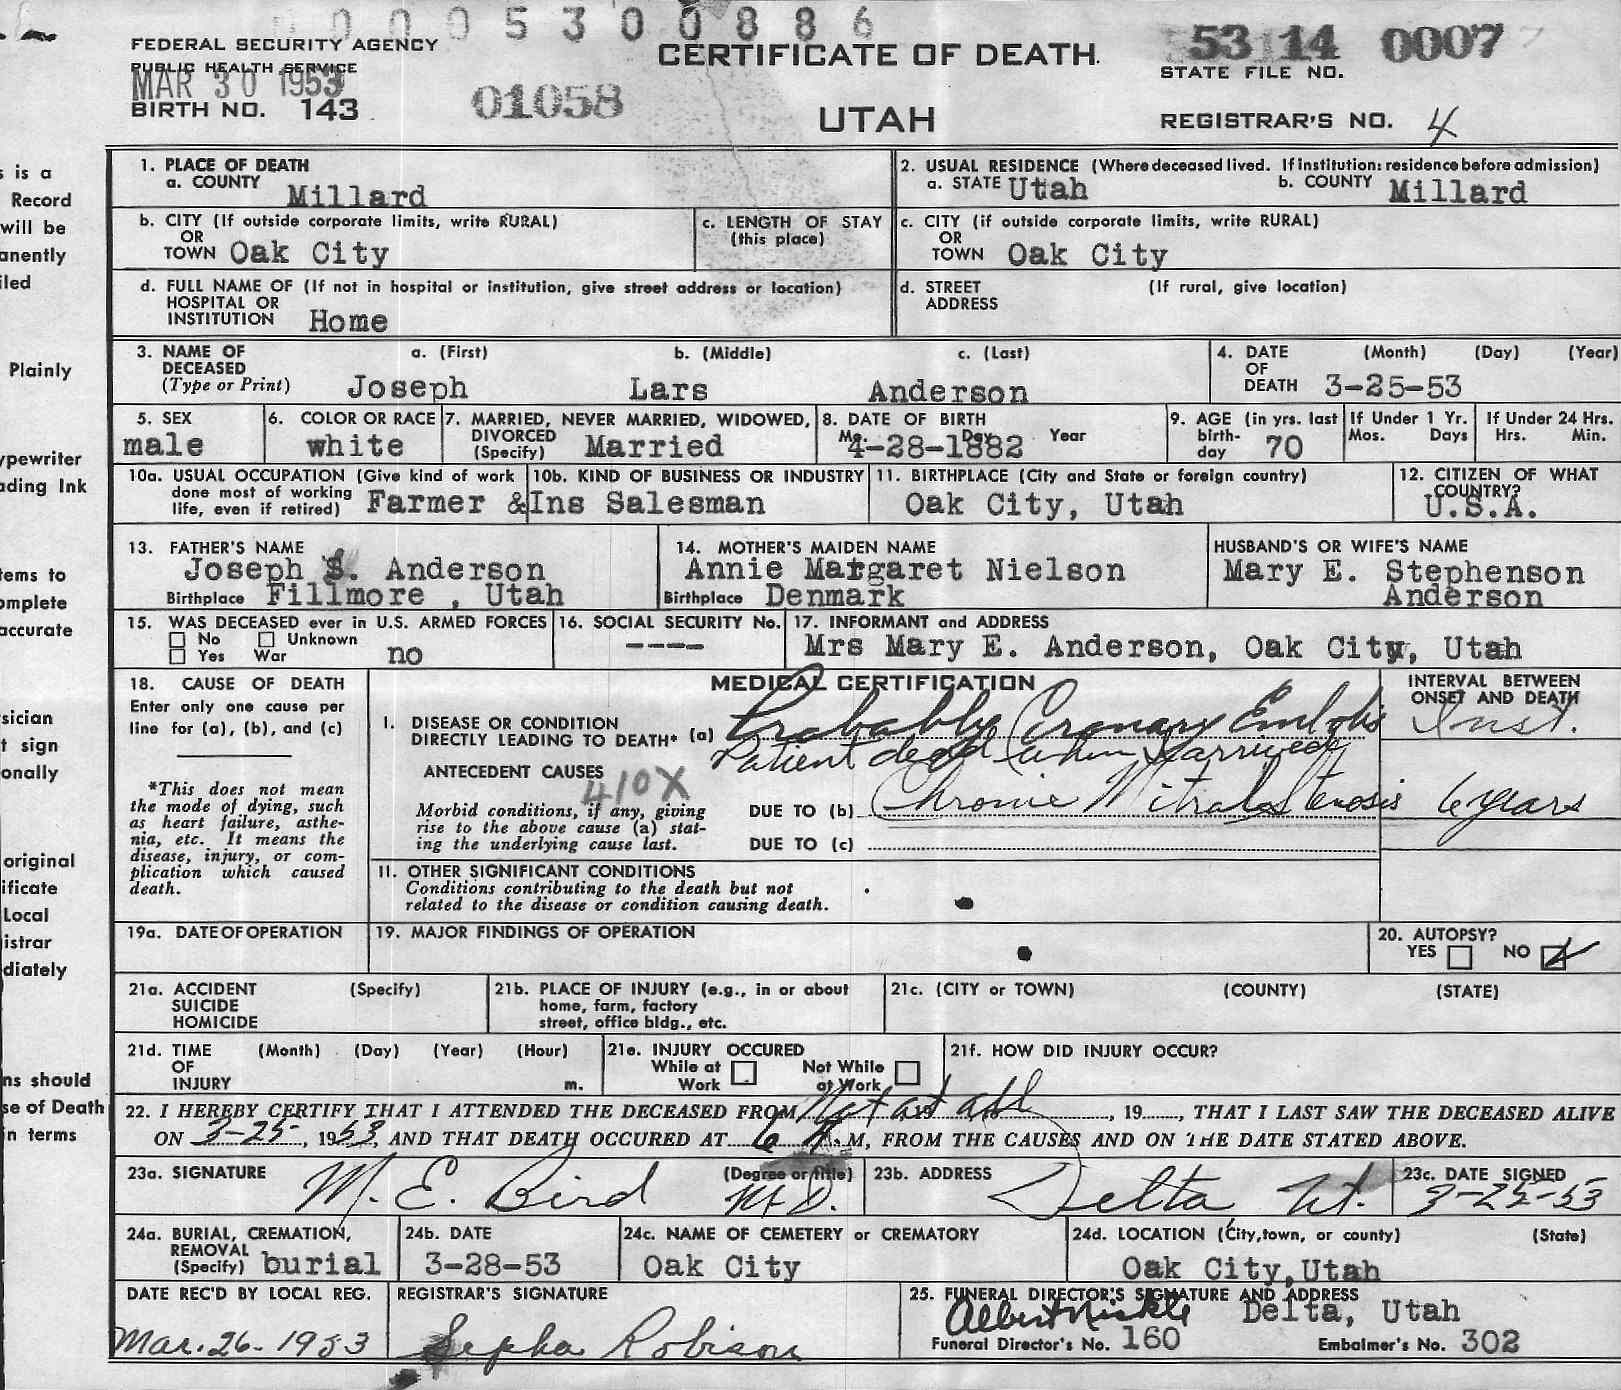 0 0 0 5 3 0 0 8 8 6
FEDERAL SECURITY AGENCY
PUBLIC HEALTH SERVICE
MAR 30 1953
BIRTH NO. 143
01058
CERTIFICATE OF DEATH
UTAH
53 14 0007
STATE FILE NO.
REGISTRAR'S NO. 4
s is a
Record
will be
anently
iled
Plainly
ypewriter
ading Ink
tems to
omplete
accurate
sician
t sign
onally
original
ificate
Local
istrar
diately
ns should
se of Death
n terms
1. PLACE OF DEATH
a. COUNTY Millard
2. USUAL RESIDENCE (Where deceased lived. If institution: residence before admission)
a. STATE Utah b. COUNTY Millard
b. CITY (If outside corporate limits, write RURAL)
OR
TOWN Oak City
c. LENGTH OF STAY
(this place)
c. CITY (if outside corporate limits, write RURAL)
OR
TOWN Oak City
d. FULL NAME OF (If not in hospital or institution, give street address or location)
HOSPITAL OR
INSTITUTION Home
d. STREET (If rural, give location)
ADDRESS
3. NAME OF a. (First) b. (Middle) c. (Last)
DECEASED
(Type or Print) Joseph Lars Anderson
4. DATE (Month) (Day) (Year)
OF
DEATH 3-25-53
5. SEX
male
6. COLOR OR RACE
white
7. MARRIED, NEVER MARRIED, WIDOWED,
DIVORCED
(Specify) Married
8. DATE OF BIRTH
Mo. Day Year
4-28-1882
9. AGE (in yrs. last
birth-
day 70
If Under 1 Yr.
Mos. Days
If Under 24 Hrs.
Hrs. Min.
10a. USUAL OCCUPATION (Give kind of work
done most of working
life, even if retired) Farmer &
10b. KIND OF BUSINESS OR INDUSTRY
Ins Salesman
11. BIRTHPLACE (City and State or foreign country)
Oak City, Utah
12. CITIZEN OF WHAT
COUNTRY?
U.S.A.
13. FATHER'S NAME
Joseph S. Anderson
Birthplace Fillmore , Utah
14. MOTHER'S MAIDEN NAME
Annie Margaret Nielson
Birthplace Denmark
HUSBAND'S OR WIFE'S NAME
Mary E. Stephenson
Anderson
15. WAS DECEASED ever in U.S. ARMED FORCES
No Unknown
Yes War no
16. SOCIAL SECURITY No.
----
17. INFORMANT and ADDRESS
Mrs Mary E. Anderson, Oak City, Utah
18. CAUSE OF DEATH
Enter only one cause per
line for (a), (b), and (c)
*This does not mean
the mode of dying, such
as heart failure, asthe-
nia, etc. It means the
disease, injury, or com-
plication which caused
death.
MEDICAL CERTIFICATION
INTERVAL BETWEEN
ONSET AND DEATH
I. DISEASE OR CONDITION
DIRECTLY LEADING TO DEATH* (a) Probably Coronary Inst.
Patient dead when I arrived
ANTECEDENT CAUSES
410X
Morbid conditions, if any, giving
rise to the above cause (a) stat-
ing the underlying cause last.
DUE TO (b) Chronic Mitral Stenosis 6 years
DUE TO (c)
II. OTHER SIGNIFICANT CONDITIONS
Conditions contributing to the death but not
related to the disease or condition causing death.
19a. DATE OF OPERATION
19. MAJOR FINDINGS OF OPERATION
20. AUTOPSY?
YES NO
21a. ACCIDENT (Specify)
SUICIDE
HOMICIDE
21b. PLACE OF INJURY (e.g., in or about
home, farm, factory
street, office bldg., etc.
21c. (CITY or TOWN) (COUNTY) (STATE)
21d. TIME (Month) (Day) (Year) (Hour)
OF
INJURY m.
21e. INJURY OCCURED
While at Not While
Work at Work
21f. HOW DID INJURY OCCUR?
22. I HEREBY CERTIFY THAT I ATTENDED THE DECEASED FROM Not at all, 19......, THAT I LAST SAW THE DECEASED ALIVE
ON 3-25-, 1953, AND THAT DEATH OCCURED AT 6 A.M, FROM THE CAUSES AND ON THE DATE STATED ABOVE.
23a. SIGNATURE (Degree or title)
M. E. Bird M.D.
23b. ADDRESS
Delta Ut.
23c. DATE SIGNED
3-25-53
24a. BURIAL, CREMATION,
REMOVAL
(Specify) burial
24b. DATE
3-28-53
24c. NAME OF CEMETERY or CREMATORY
Oak City
24d. LOCATION (City, town, or county) (State)
Oak City, Utah
DATE REC'D BY LOCAL REG.
Mar. 26- 1953
REGISTRAR'S SIGNATURE
Sepha Robison
25. FUNERAL DIRECTOR'S SIGNATURE AND ADDRESS
Albert Nickle Delta, Utah
Funeral Director's No. 160 Embalmer's No. 302